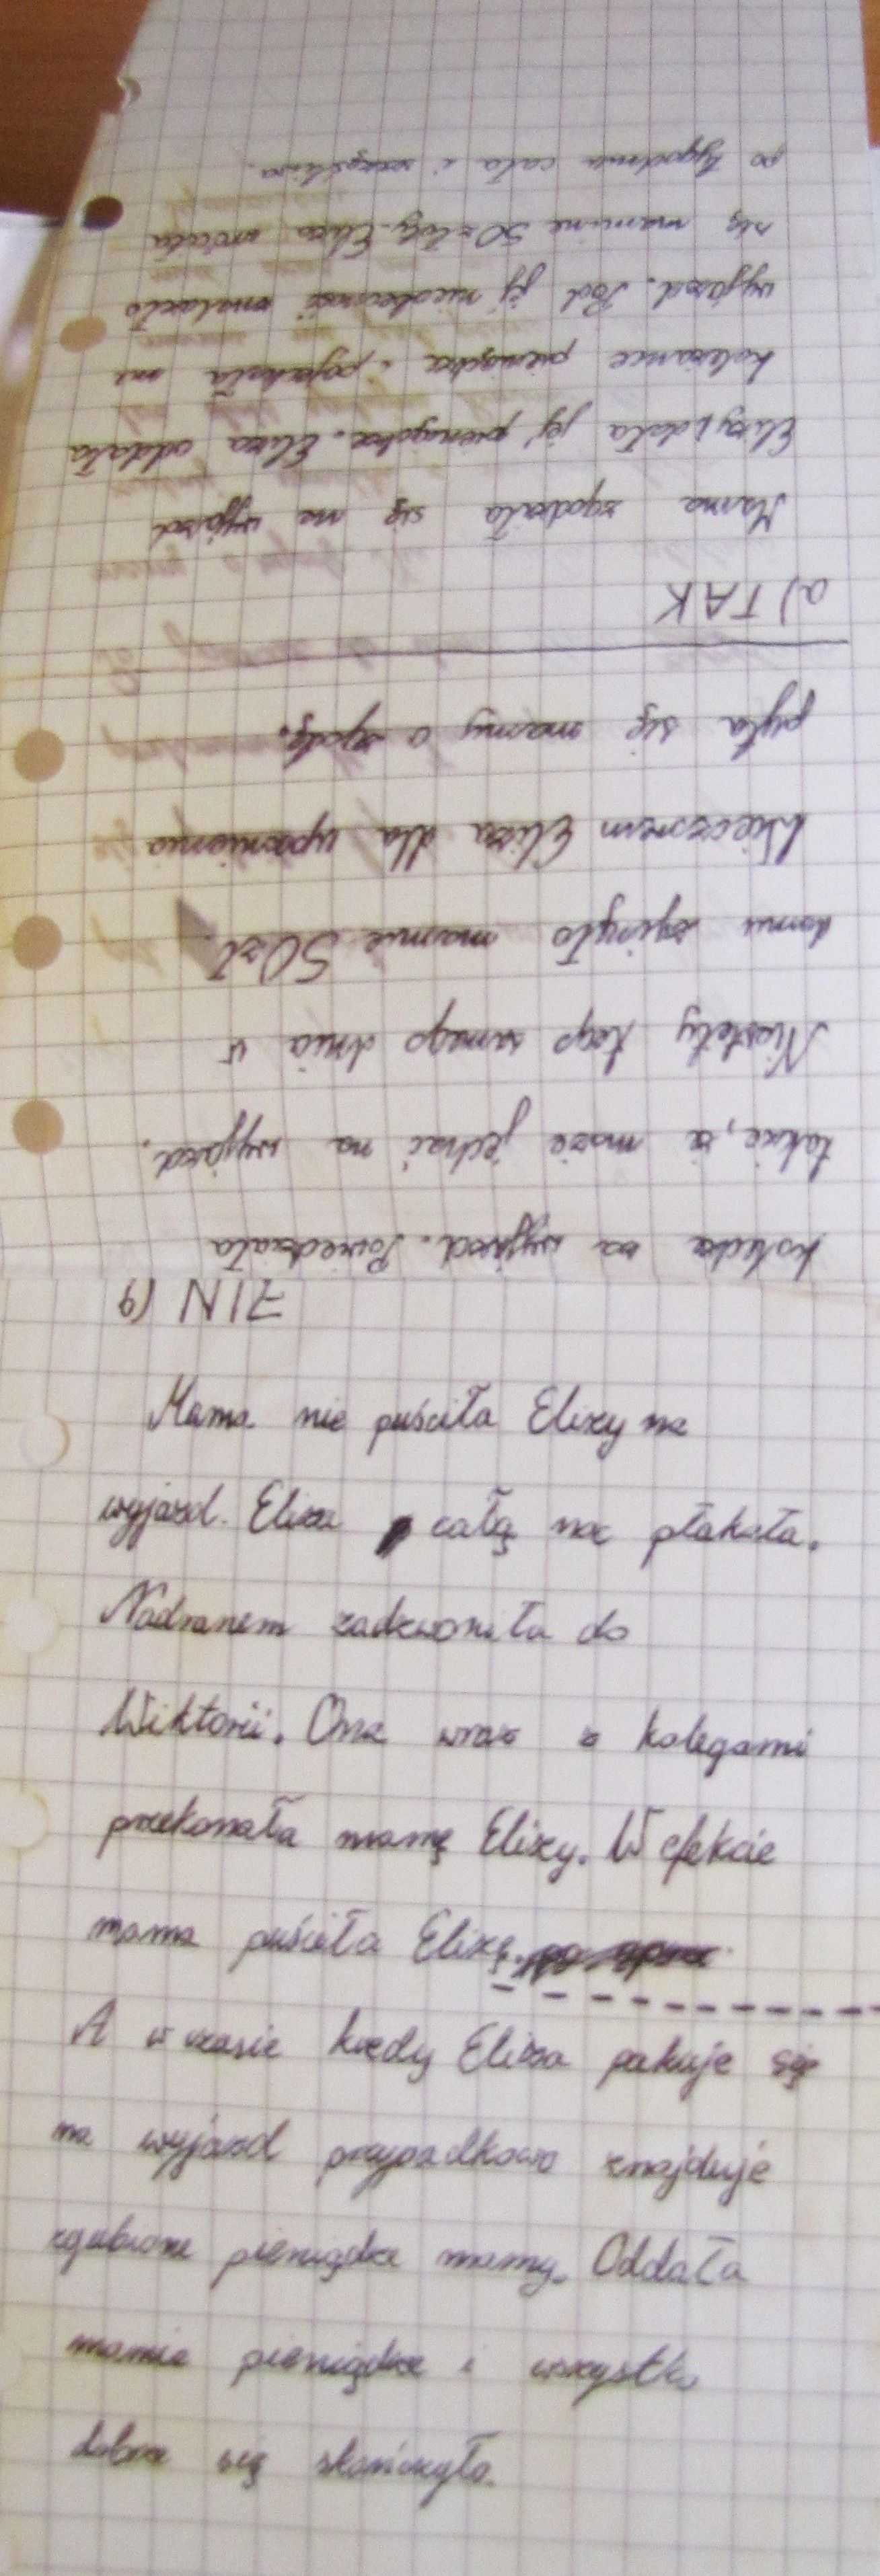 za wyjazd. Powiedziała
także, że może jechać na wyjazd.
Niestety tego samego dnia w
domu zginęło mamie 50 zł.
Wieczorem Eliza dla upewnienia
pyta się mamy o zgodę.
a) TAK
Mama zgodziła się na wyjazd
Elizy i dała jej pieniądze. Eliza oddała
koleżance pieniądze i pojechała na
wyjazd. Pod jej nieobecność znalazło
się mamine 50 złoty. Eliza wróciła
po tygodniu cała i szczęśliwa.
b) NIE
Mama nie puściła Elizy na
wyjazd. Eliza całą noc płakała.
Nadranem zadzwoniła do
Wiktorii. Ona wraz z kolegami
przekonała mamę Elizy. W efekcie
mama puściła Elizę.
A w czasie kiedy Eliza pakuje się
na wyjazd przypadkowo znajduje
zgubione pieniądze mamy. Oddała
mamie pieniądze i wszystko
dobrze się skończyło.